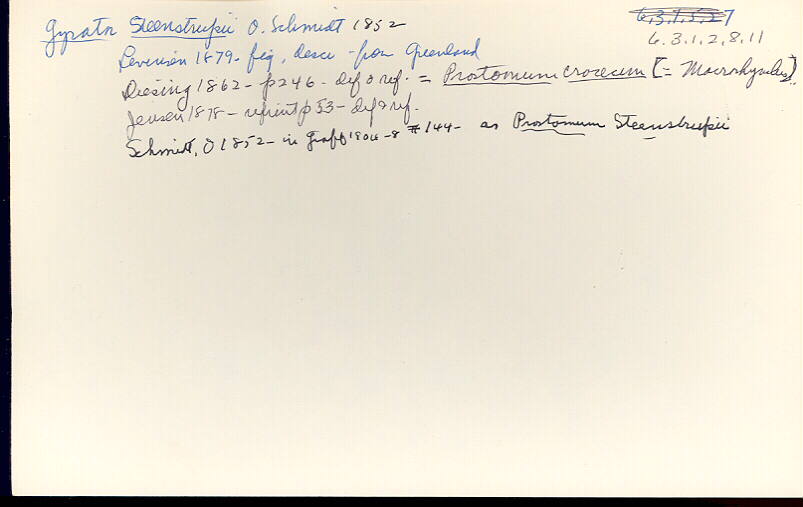 Gyrator Steenstrupii O. Schmidt 1852
6.3.1.2.8.11
Levinsen 1879 - fig, desc - from Greenland
Diesing 1862 - p 246 - def & ref. = Prostomum croceum [= Macrorhynchus]
Jensen 1878 - reprint p 53 - def & ref.
Schmidt, O 1852 - in Graff 1904-8 #144 - as Prostomum Steenstrupii